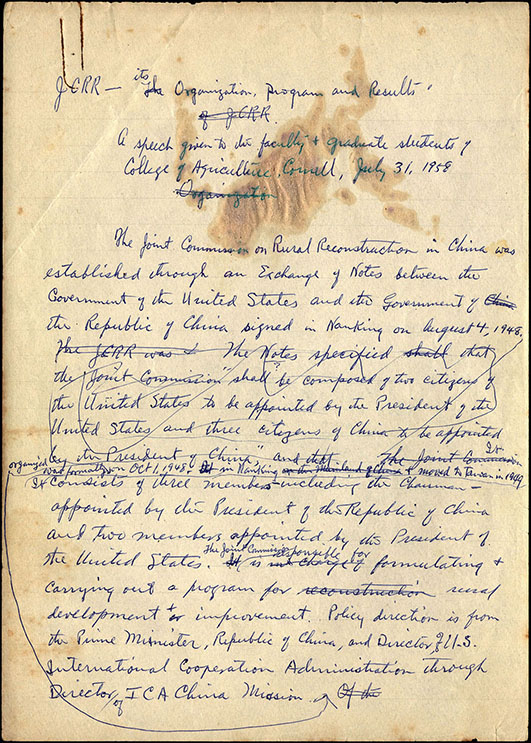 its
JCRR — The Organization, Program and Results
of JCRR
A speech given to the faculty + graduate students of
College of Agriculture, Cornell, July 31, 1958
Organization
The Joint Commission on Rural Reconstruction in China was
established through an Exchange of Notes between the
Government of the United States and the Government of China
the Republic of China signed in Nanking on August 4, 1948.
The JCRR was The Notes specified shall that
the "Joint Commission" shall be composed of two citizens of
the United States to be appointed by the President of the
United States and three citizens of China to be appointed
by the President of China" and that The Joint Commission It
organized
was formally on Oct 1, 1948 in Nanking on the Mainland of China + moved to Taiwan in 1949
It consists of three members including the Chairman
appointed by the President of the Republic of China
and two members appointed by the President of
the United States. The Joint Commission It is in charge of responsible for formulating +
carrying out a program for reconstruction rural
development + or improvement. Policy direction is from
the Prime Minister, Republic of China, and Director, of U.S.
International Cooperation Administration through
Director of ICA China Mission. Of the